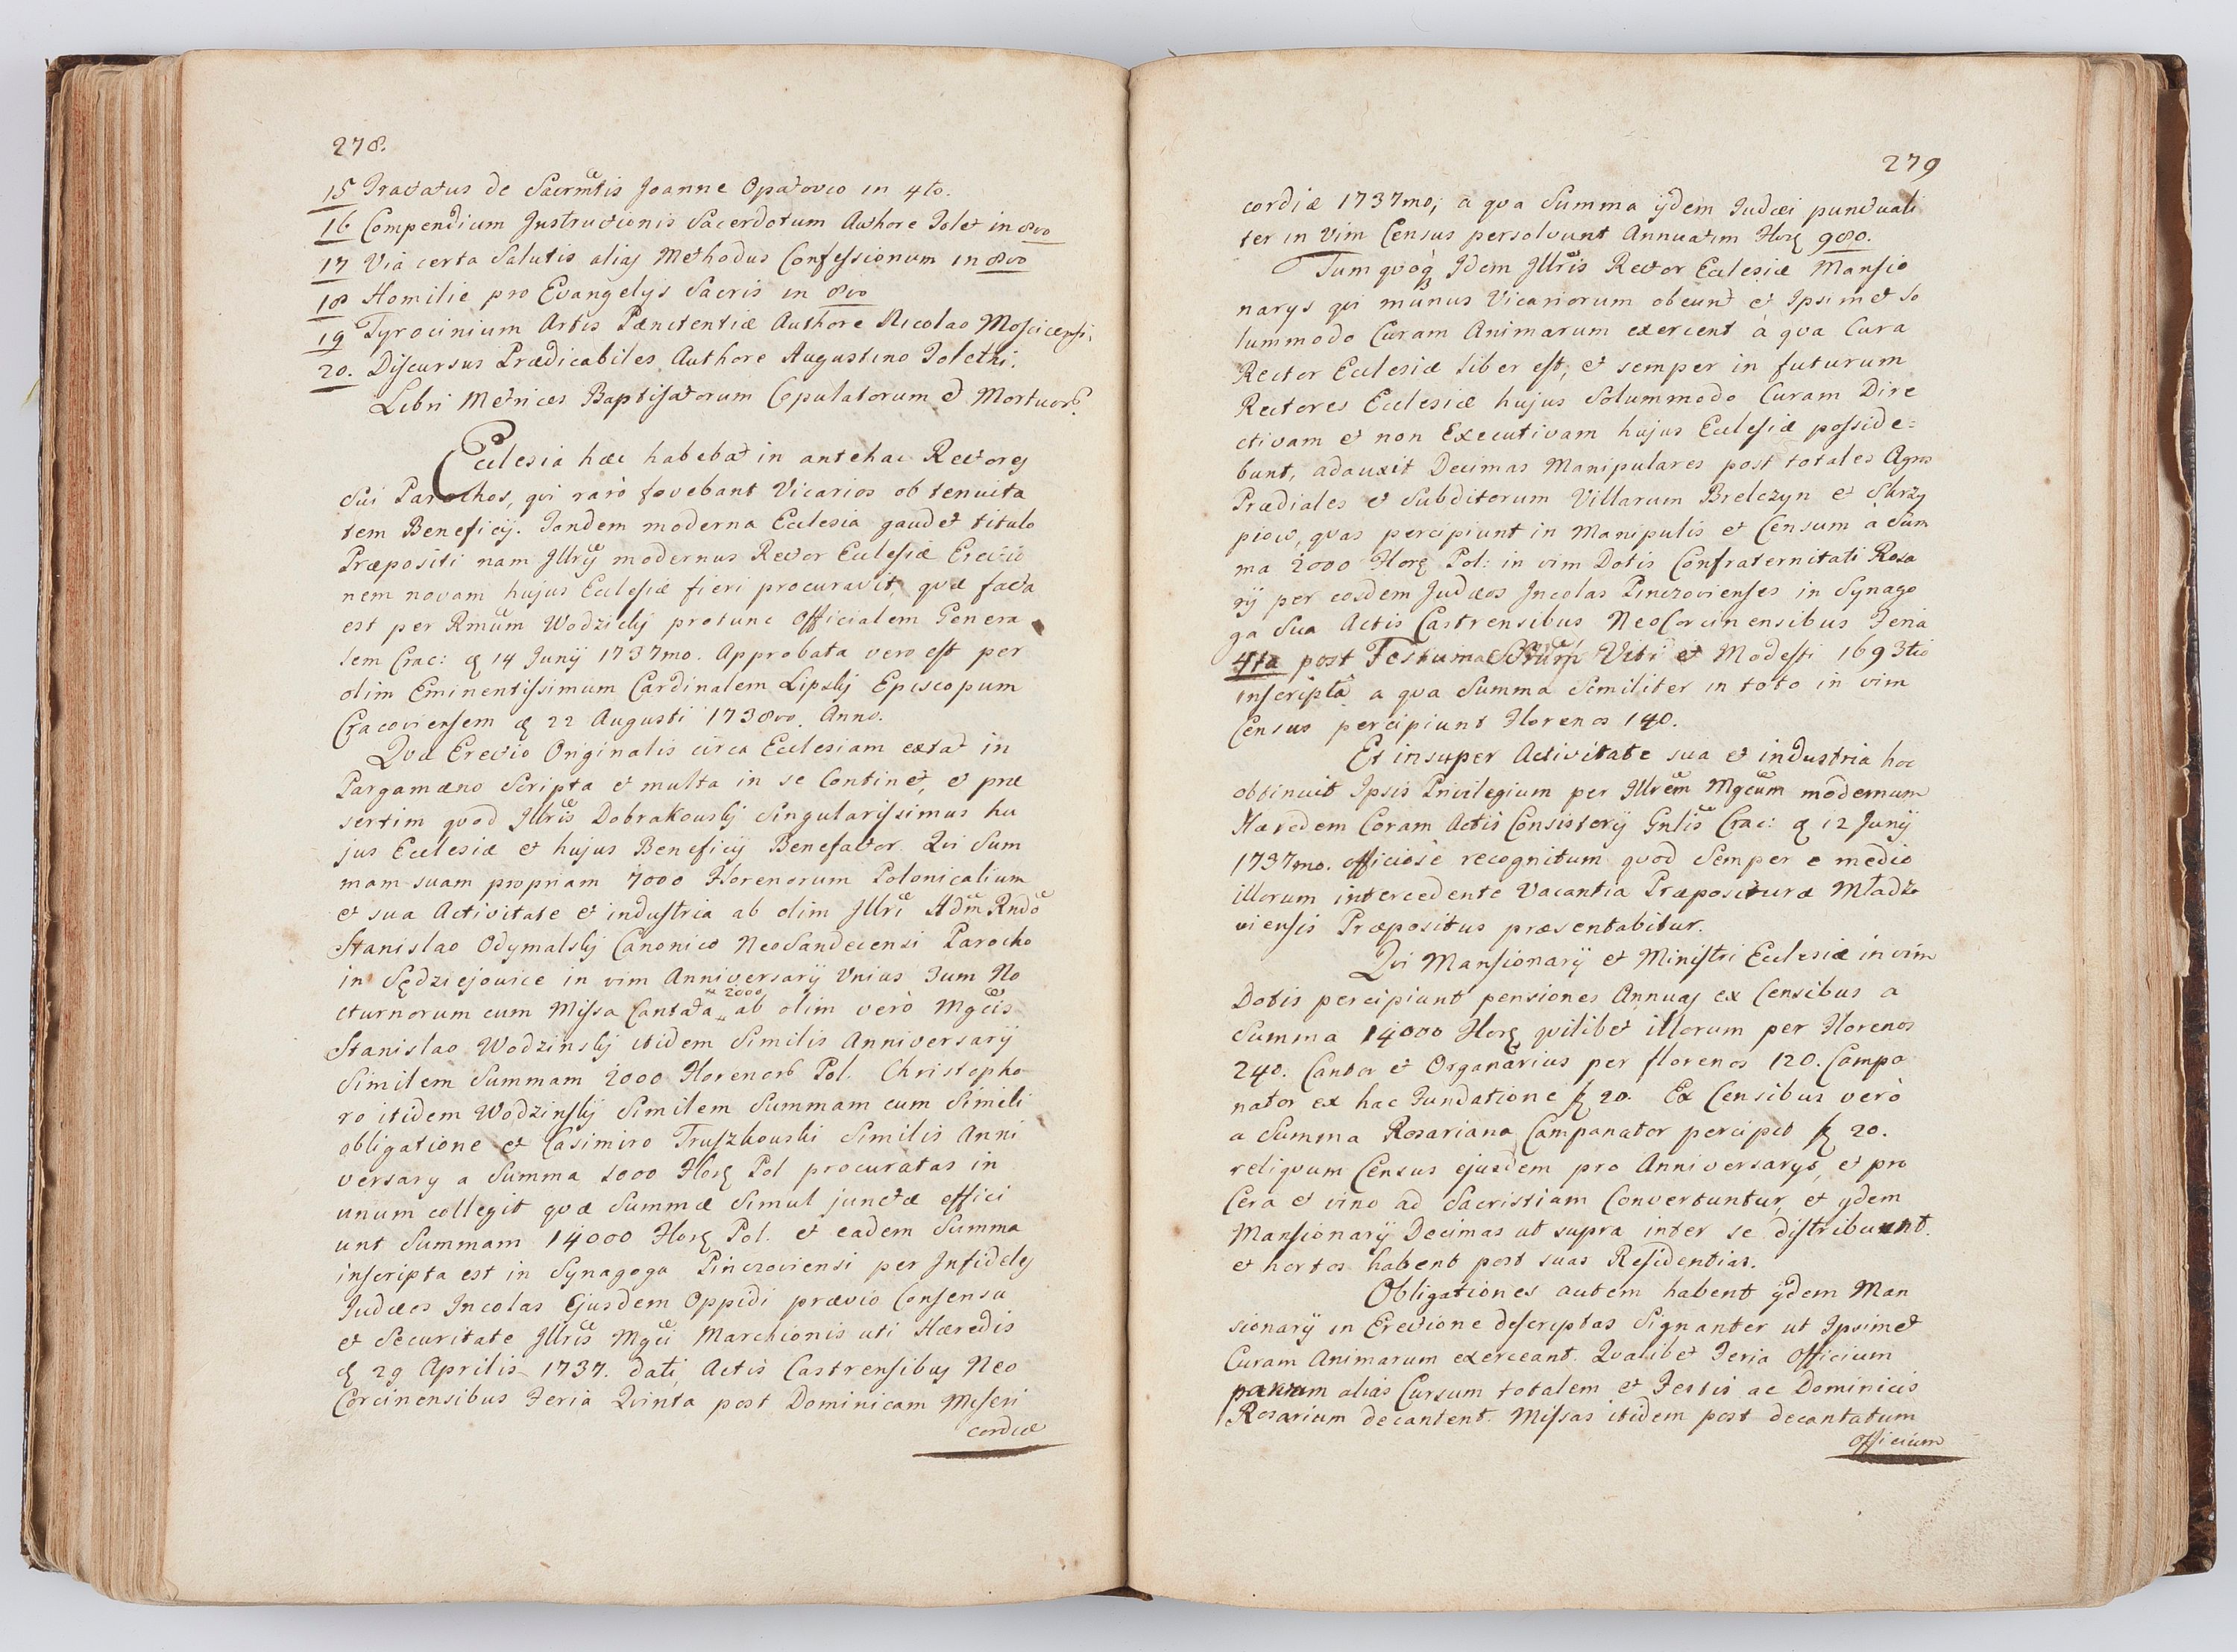 278.
15 Tractatus de Sacrmtis Joanne Opatovio in 4to.
16 Compendium Instructionis Sacerdotum Authore Tolet in 8vo
17 Via certa Salutis alias Methodus Confessionum in 8vo
18 Homilie pro Evangelys Sacris in 8vo
19 Tyrocinium Artis Pænitentiæ Authore Nicolao Moscicensi,
20. Discursus Prædicabiles Authore Augustino
Libri Metrices Baptisatorum Copulatorum et Mortuorb.
Ecclesia hæc habebat in antehac Rectores
sui Parochos, qvi raro fovebant Vicarios ob tenuita
tem Beneficij. Tandem moderna Ecclesia gaudet titulo
Præpositi nam Illris modernus Rector Ecclesiæ Erectio
nem novam hujus Ecclesiæ fieri procuravit, qvæ facta
est per Rmum Wodzicki protunc Officialem Genera
lem Crac: d 14 Junij 1737mo. Approbata vero est per
olim Eminentissimum Cardinalem Lipski Episcopum
Cracoviensem d 22 Augusti 1738vo. Anno.
Qvæ Erectio Originalis circa Ecclesiam extat in
Pargamæno Scripta et multa in se Continet, et præ
sertim qvod Illris Dobrakowski Singularissimus hu
jus Ecclesiæ et hujus Beneficij Benefactor. Qvi Sum
mam suam propriam 7000 Florenorum Polonicalium
et sua Activitate et industria ab olim Illri Adm Rndo
Stanislao Odymalski Canonico NeoSandecensi Parocho
in Sędziejowice in vim Anniversarij Unius Tum No
cturnorum cum Missa Cantata „ ab olim verò Mgcis
" 2000
Stanislao Wodzinski itidem Similis Anniversarij
Similem Summam 2000 Florenorb Pol. Christopho
ro itidem Wodzinski Similem Summam cum Simili
obligatione et Casimiro Truszkowski Similis Anni
versary a Summa 1000 Flor Pol procuratas in
unum collegit qvæ Summæ Simul junctæ effici
unt Summam 14000 Flor Pol. et eadem Summa
inscripta est in Synagoga Pinczoviensi per Infideles
Judæos Incolas Ejusdem Oppidi prævio Consensu
et Securitate Illris Mgci Marchionis uti Hæredis
d 29 Aprilis 1737. dati, Actis Castrensibus Neo
Corcinensibus Feria Qvinta post Dominicam Miseri
cordiæ
279
cordiæ 1737mo, a qva Summa ijdem Judæi punctuali
ter in vim Census persolvunt Annuatim Flor 980.
Tum qvoq Idem Illris Rector Ecclesiæ Mansio
narys qvi munus Vicariorum obeunt et Ipsimet so
lummodo Curam Animarum exercent à qva Cura
Rector Ecclesiæ liber est, et semper in futurum
Rectores Ecclesiæ hujus Solummodo Curam Dire
ctivam et non Executivam hujus Ecclesiæ posside=
bunt, adauxit Decimas Manipulares post totales Agros
Prædiales et Subditorum Villarum Brelczyn et Skrzy
piow, qvas percipiunt in Manipulis et Censum à Sum
ma 2000 Flor Pol: in vim Dotis Confraternitati Rosa
rij per eosdem Judæos Incolas Pinczovienses in Synago
ga Sua Actis Castrensibus NeoCorcinensibus Feria
4ta post Festum Viti et Modesti 1693tio
inscripta a qva Summa Similiter in toto in vim
Census percipiunt Florenos 140.
Et insuper Activitate sua et industria hoc
obtinuit Ipsis Privilegium per Illrem Mgcum modernum
Hæredem Coram Actis Consistorij Gnlis Crac: d 12 Junij
1737mo. officiosè recognitum qvod Semper e medio
illorum intercedente Vacantia Præposituræ Mładzo
viensis Præpositus præsentabitur.
Qvi Mansionarij et Ministri Ecclesiæ in vim
Dotis percipiunt pensiones Annuas ex Censibus a
Summa 14000 Flor qvilibet illorum per Florenos
240. Cantor et Organarius per florenos 120. Campa
nator ex hac Fundatione f 20. Ex Censibus verò
a Summa Rosariana Campanator percipit f 20.
reliqvum Census ejusdem pro Anniversarys, et pro
Cera et vino ad Sacristiam Convertuntur, et ydem
Mansionarij Decimas ut supra inter se distribuunt.
et hortos habent post suas Residentias.
Obligationes autem habent ydem Man
sionarij in Erectione descriptas Signanter ut Ipsimet
Curam Animarum exerceant. Qvalibet Feria Officium
parvum alias Cursum totalem et Festis ac Dominicis
Rosarium decantent. Missas itidem post decantatum
Officium